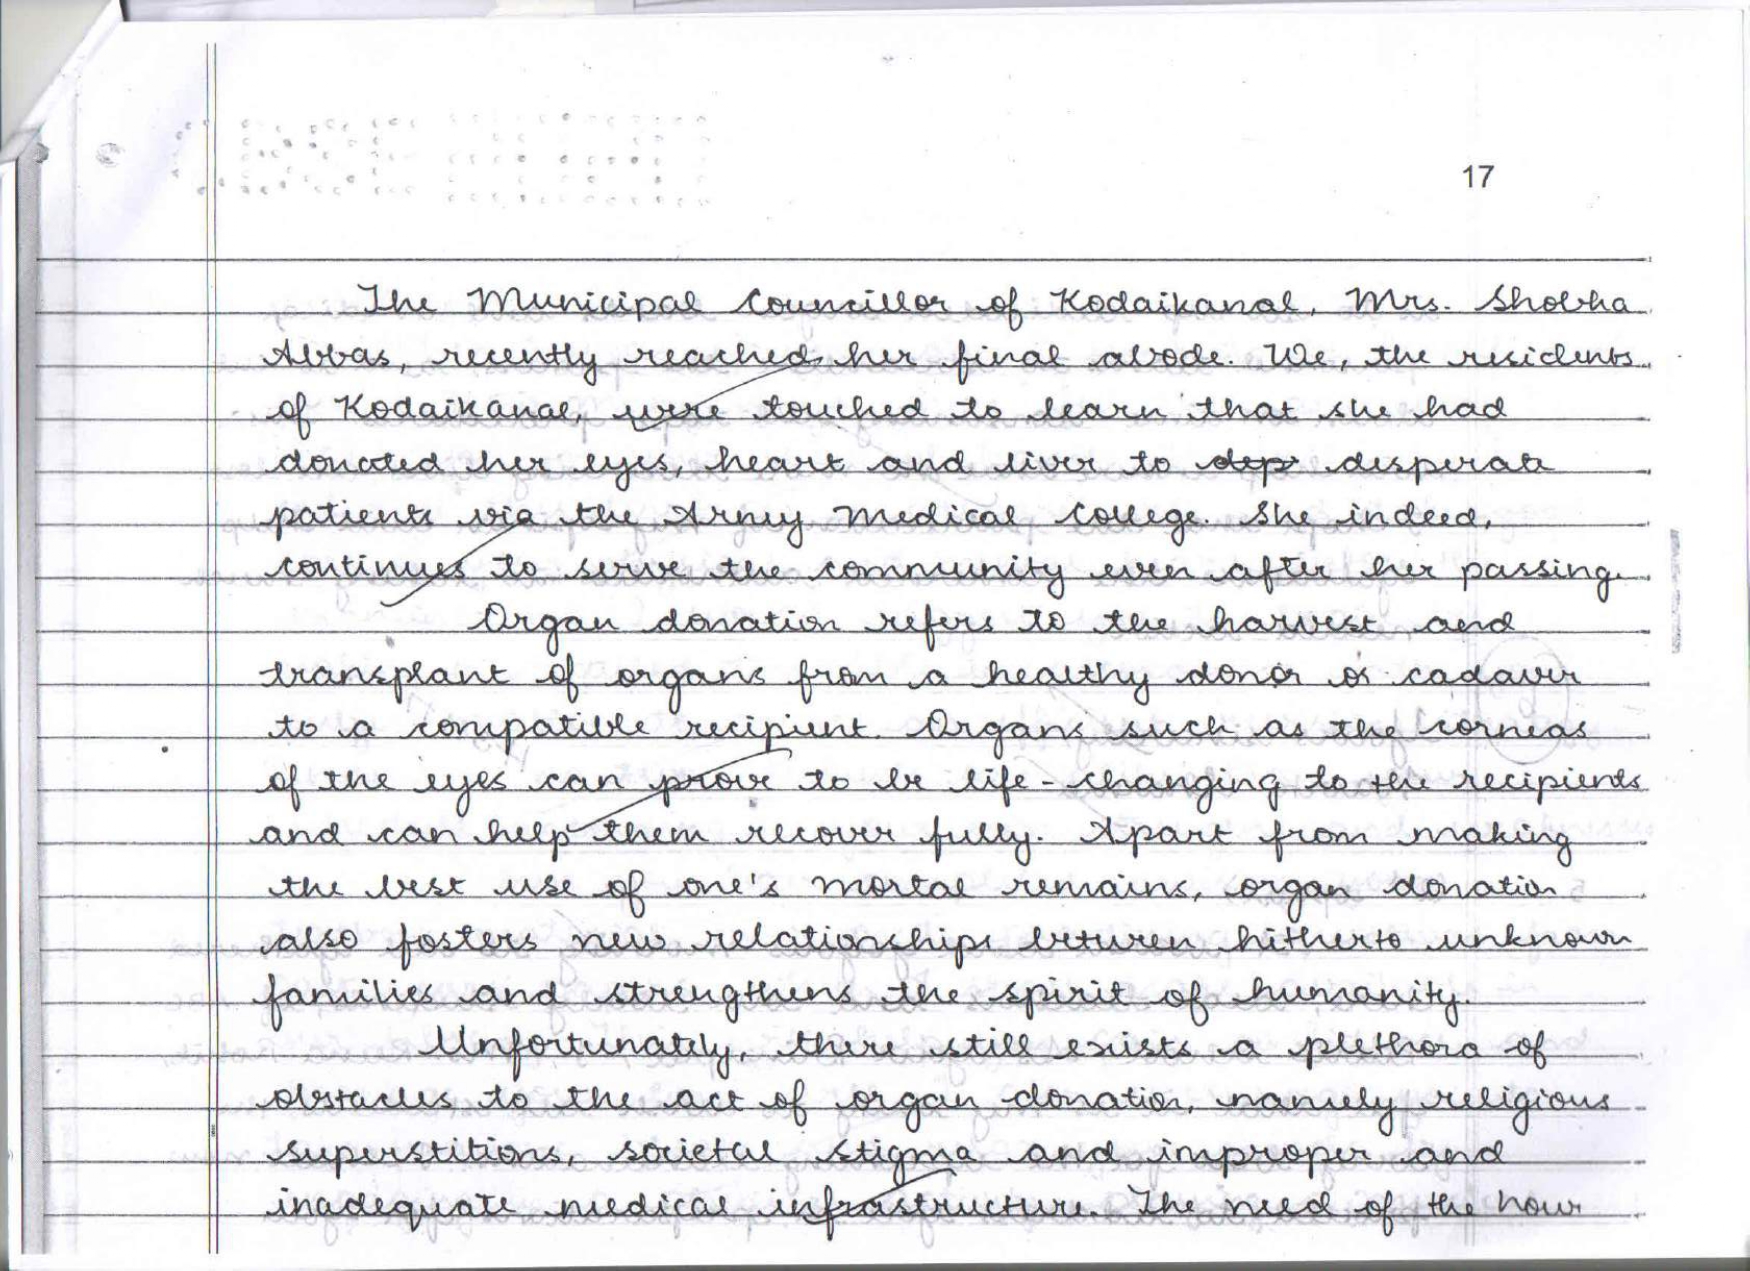 17
The Municipal Councillor of Kodaikanal, Mrs. Shobha
Abbas, recently reached her final abode. We, the residents
of Kodaikanal, were touched to learn that she had
donated her eyes, heart and liver to dep desperate
patients via the Army Medical College. She indeed,
continues to serve the community even after her passing.
Organ donation refers to the harvest and
transplant of organs from a healthy donor or cadaver
to a compatible recipient. Organs such as the corneas
of the eyes can prove to be life-changing to the recipients
and can help them recover fully. Apart from making
the best use of one's mortal remains, organ donation
also fosters new relationships between hitherto unknown
families and strengthens the spirit of humanity.
Unfortunately, there still exists a plethora of
obstacles to the act of organ donation, namely religious
superstitions, societal stigma and improper and
inadequate medical infrastructure. The need of the hour